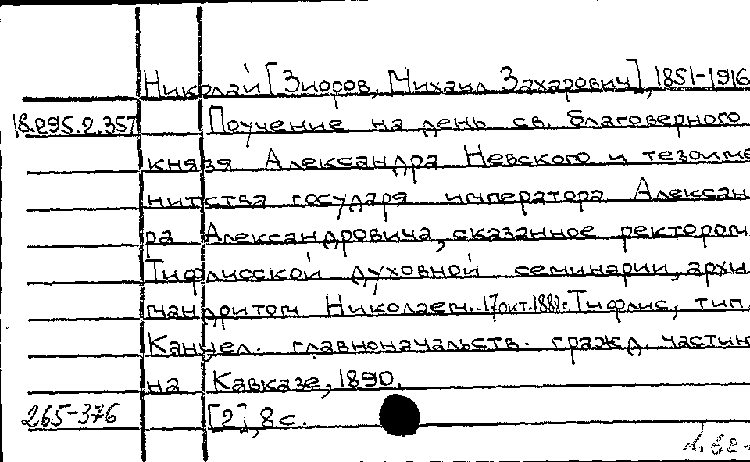 Николай [Зиоров, Михаил Захарович], 1851-1916
18.295.2.357 Поучение на день св. благоверного
князя Александра Невского и тезоиме
нитства государя императора Алексан
ра Александровича, сказанное ректором
Тифлисской духовной семинарии, архи
мандритом Николаем.. Тифлис, тип.
Канцел. главноначальств. гражд. частин
на Кавказе, 1890.
265-376 [2], 8 с.